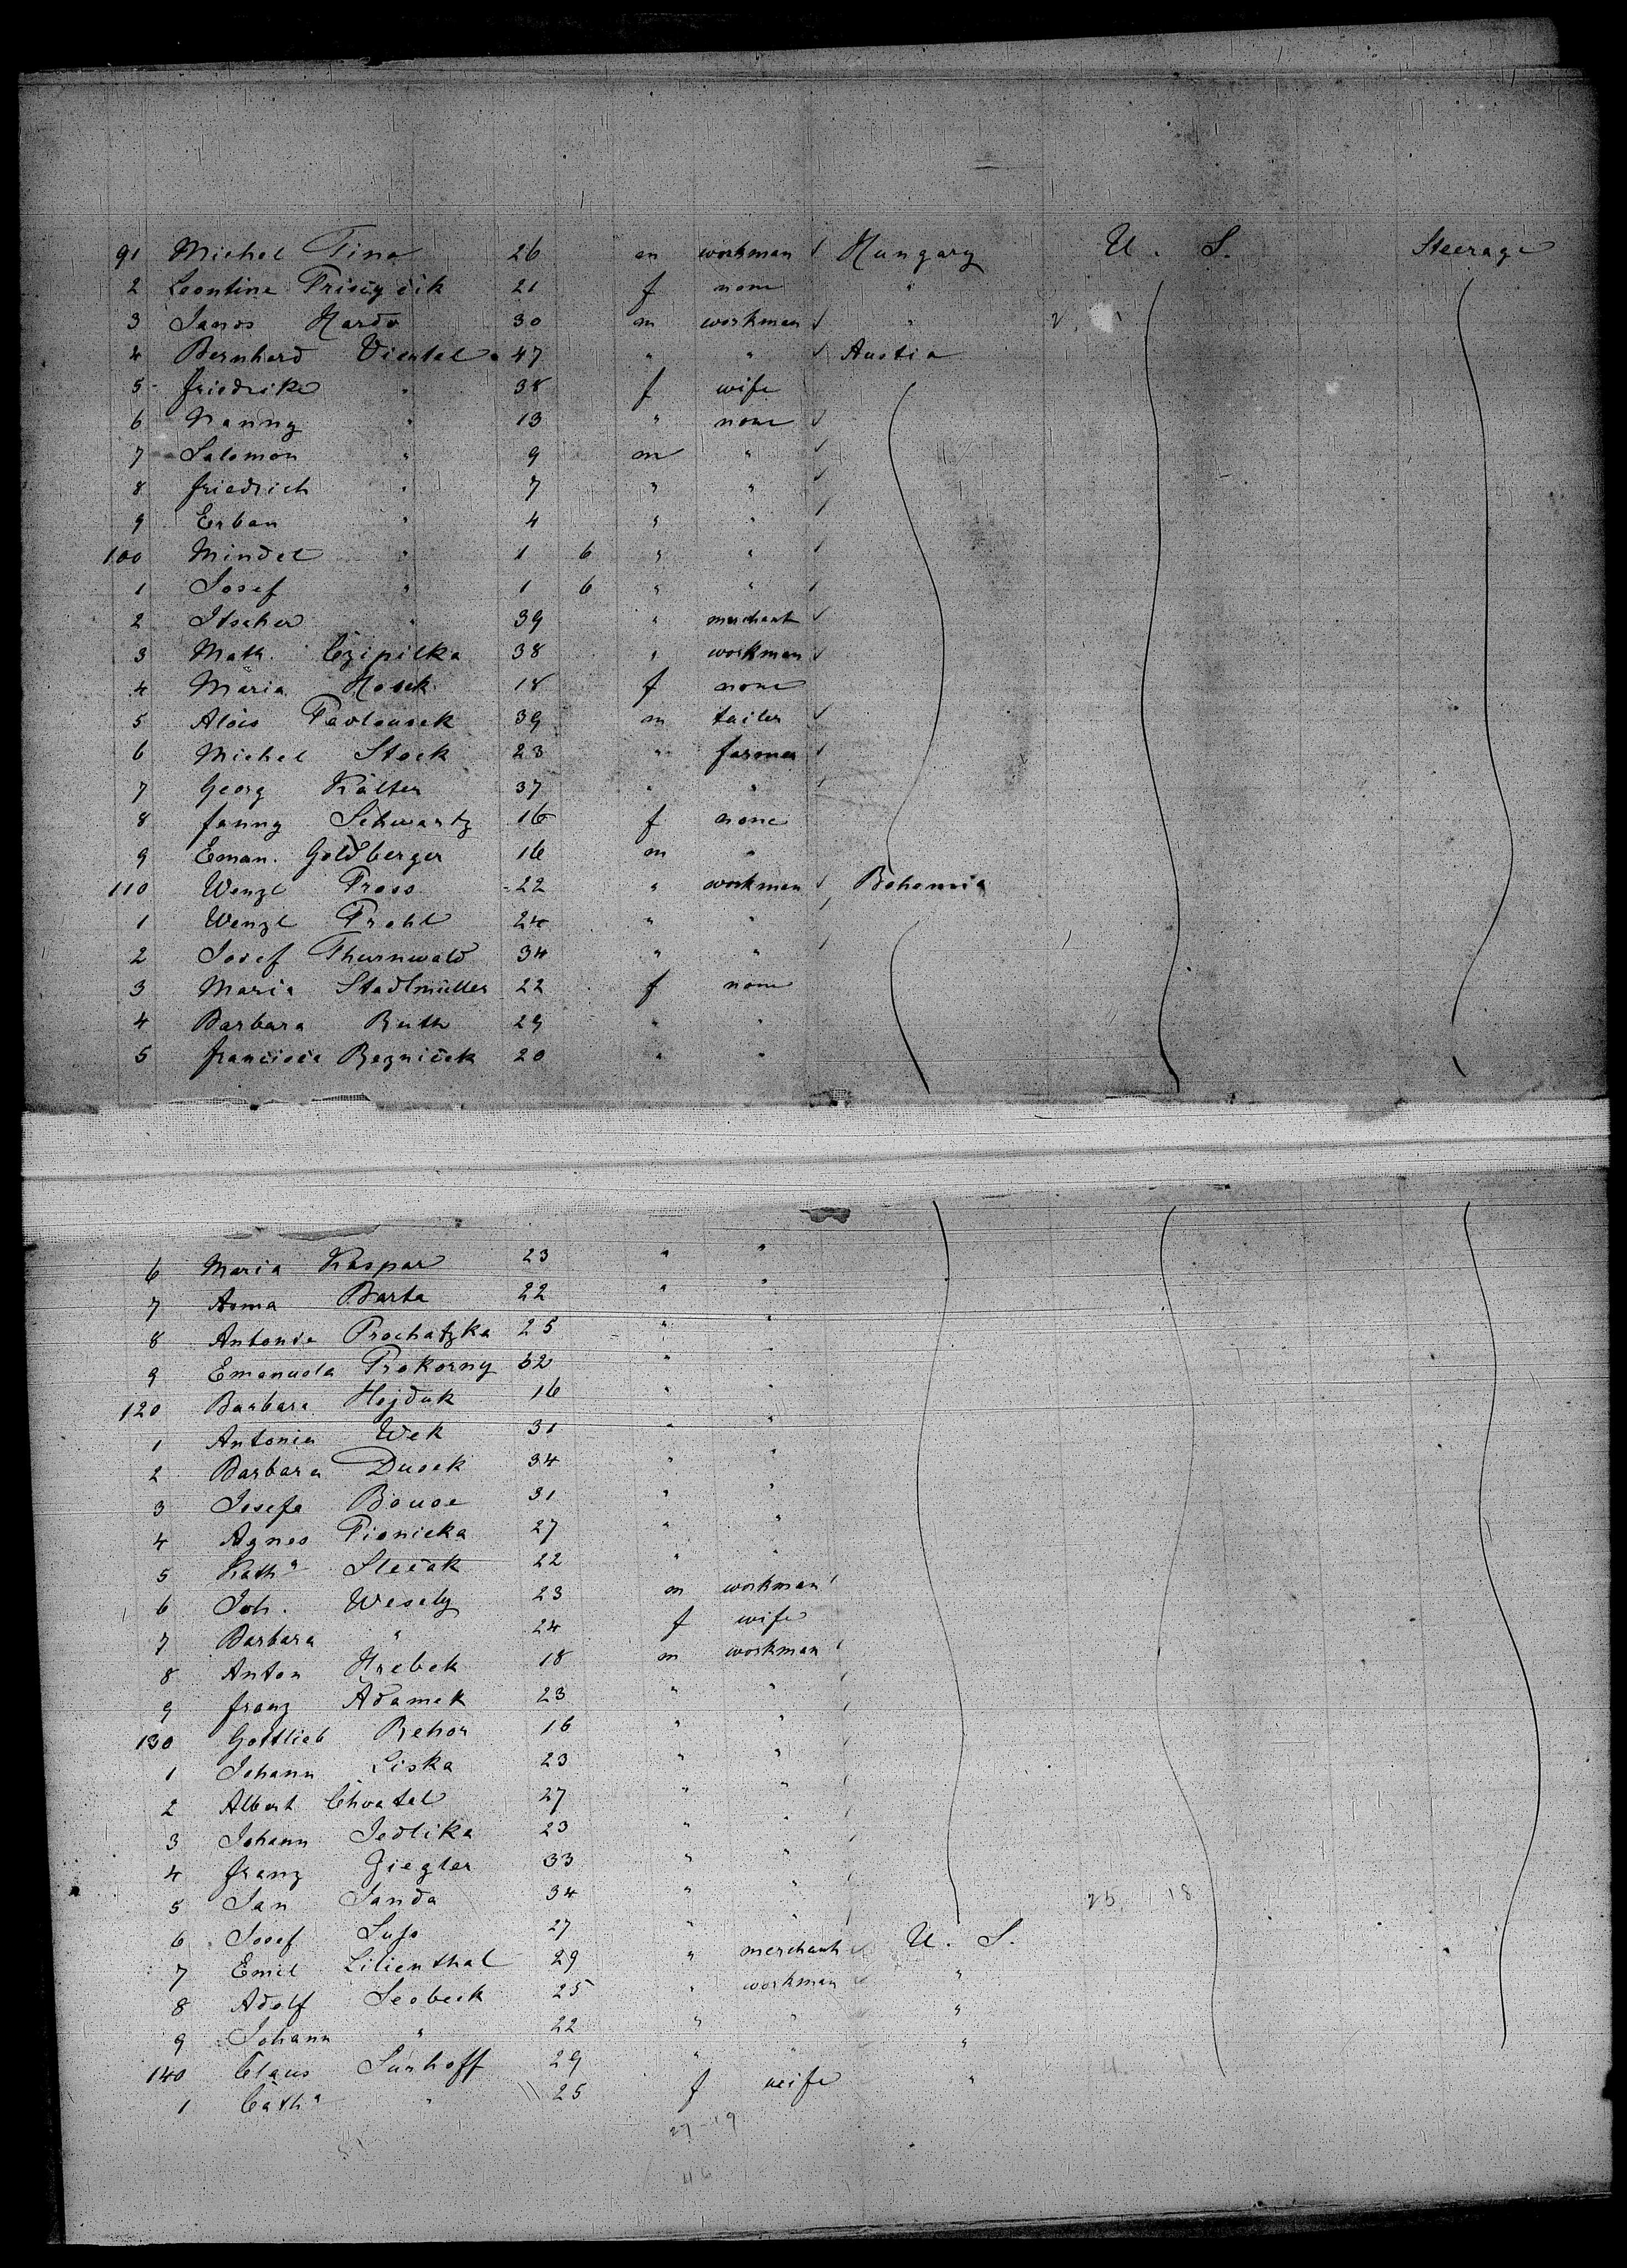 91 Michel Tina 26 m workman ✓ Hungary U. S. Steerage
2 Leontine 21 f none "
3 Janos Hardo 30 m workman ✓ "
4 Bernhard Viertel 47 " " ✓ Austia
5 Friedrike " 38 f wife
6 Nanny " 13 " none ✓
7 Salomon " 9 m " ✓
8 Friedrich " 7 " " ✓
9 Erban " 4 " " ✓
100 Mindel " 1 6 " " ✓
1 Josef " 1 6 " " ✓
2 Itscher " 39 " merchant ✓
3 Math. Czipilka 38 " workman ✓
4 Maria Hosek 18 f none
5 Alois Pavlousek 39 m tailer ✓
6 Michel Stock 23 " farmer ✓
7 Georg Kälter 37 " " ✓
8 Fanny Schwartz 16 f none
9 Eman. Goldberger 16 m "
110 Wenzl Pross 22 " workman ✓ Bohemia
1 Wenzl Prohl 24 " " ✓
2 Josef Thurnwald 34 " " ✓
3 Maria Stadlmüller 22 f none
4 Barbara Ruth 29 " "
5 Francisca Rezniček 20 " "
6 Maria Kaspar 23 " "
7 Anna Barta 22 " "
8 Antonie Prochatzka 25 " "
9 Emanuela Prokorny 32 " "
120 Barbara Hejduk 16 " "
1 Antonia Wek 31 " "
2 Barbara Dusek 34 " "
3 Josefa 31 " "
4 Agnes Pionicka 27 " "
5 Kath^a Slecak 22 " "
6 Joh. Wesely 23 m workman ✓
7 Barbara " 24 f wife
8 Anton Hrebek 18 m workman ✓
9 Franz Adamek 23 " " ✓
130 Gottlieb Rehor 16 " " ✓
1 Johann Liska 23 " " ✓
2 Albert Chvatal 27 " " ✓
3 Johann Jedlika 23 " " ✓
4 Franz Ziegler 33 " " ✓
5 Jan Janda 34 " " ✓
6 Josef 27 " " ✓
7 Emil Lilienthal 29 " merchant ✓ U. S.
8 Adolf Seobeck 25 " workman ✓ "
9 Johann " 22 " " "
140 Claus Surhoff 29 " " "
1 Cath^a " 25 f weife "